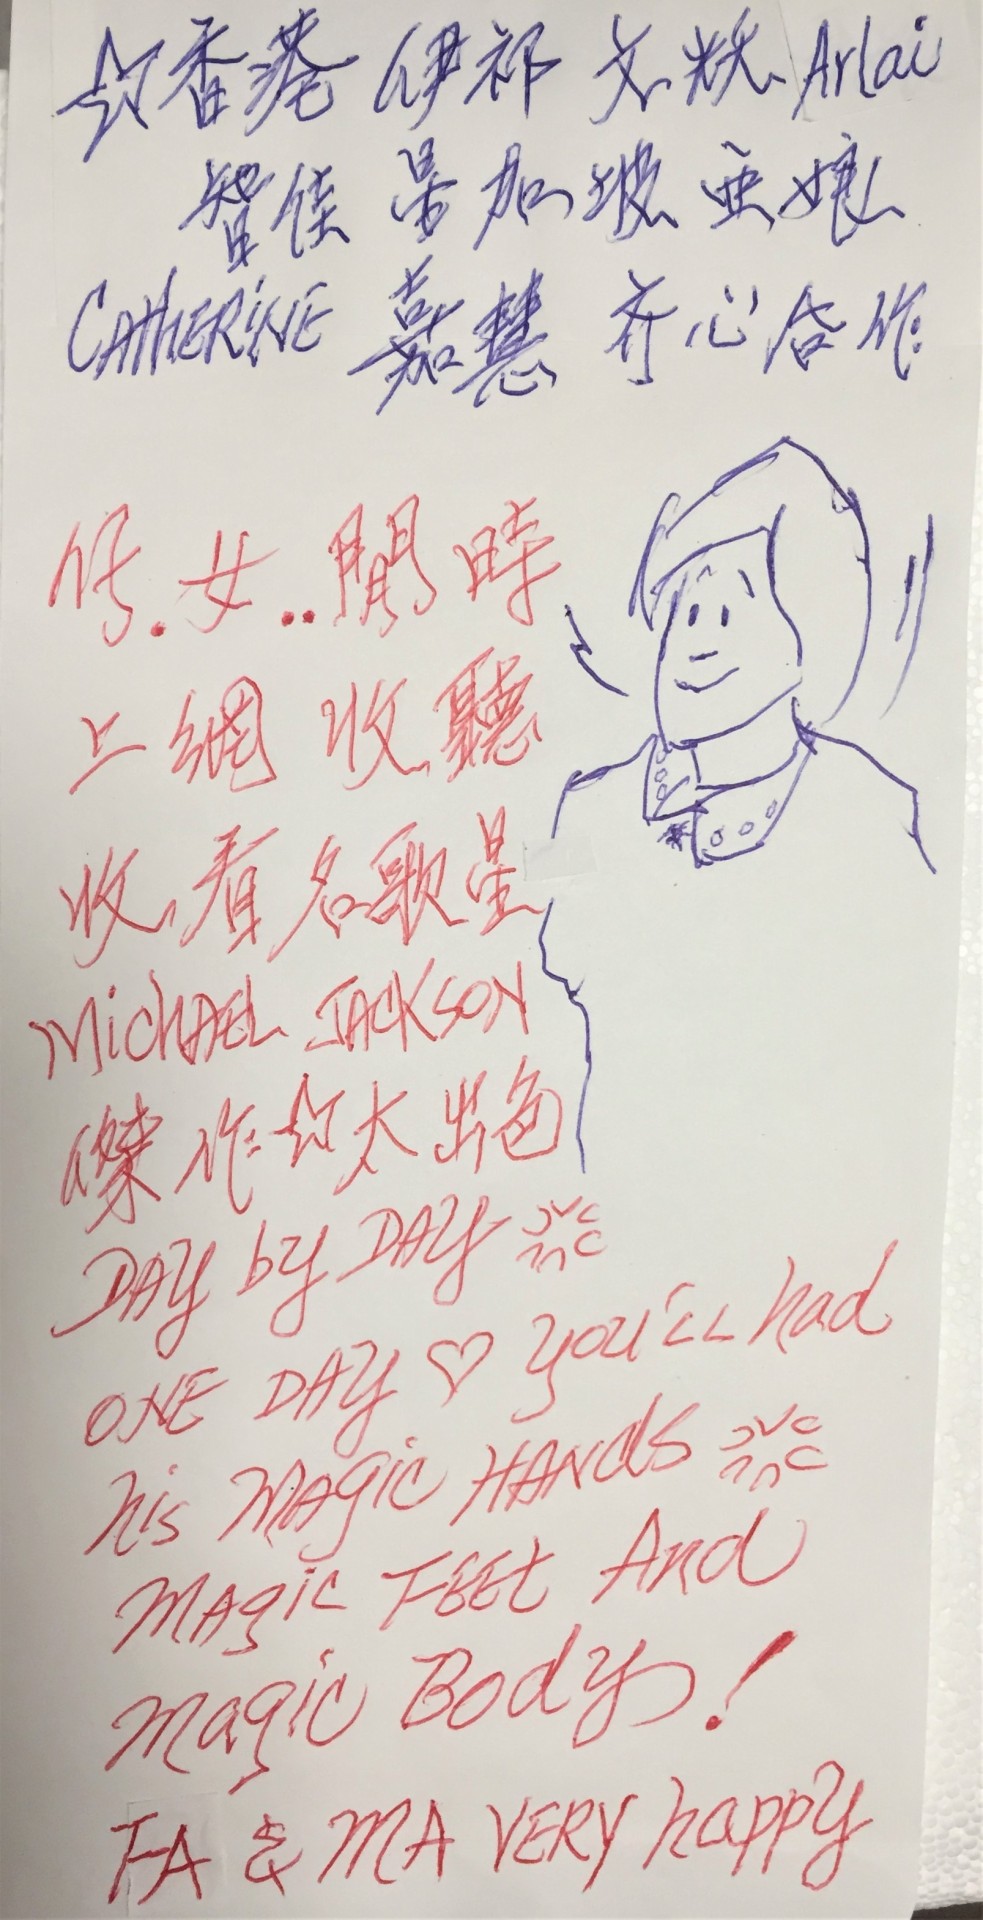 ☆香港 伊祁 文 Arlai
智佳 星加坡 亜娘
CATHERiNE 嘉慧 齐心合作
仔.女..閒時
上網 收聽
收看名歌星
MiCHAEL JACKSON
傑作☆太出色
DAY by DAY
ONE DAY ♡ you'LL had
his MAgic HANds
MAgic FEEt And
Magic Body!
FA & MA VERY happy